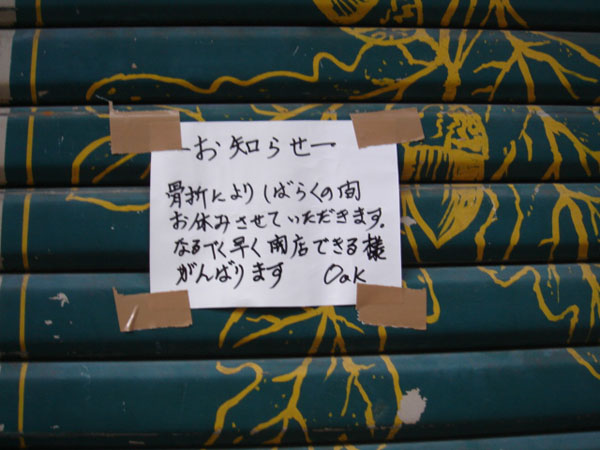 ーお知らせー
骨折によりしばらくの間
お休みさせていただきます。
なるべく早く開店できる様
がんばります Oak